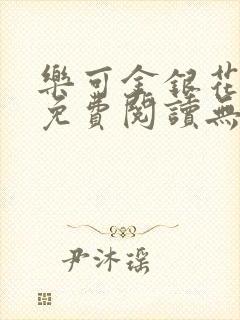 樂可金銀花
免費閱讀無
尹沐瑶